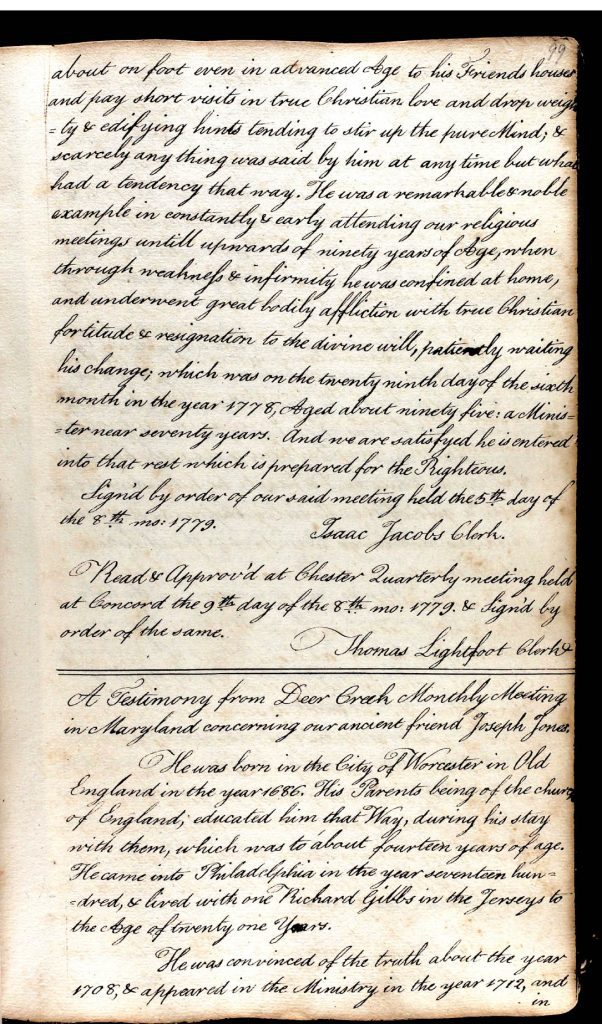 99
about on foot even in advanced Age to his Friends houses
and pay short visits in true Christian love and drop weigh
=ty & edifying hints tending to stir up the pure Mind; &
scarcely any thing was said by him at any time but what
had a tendency that way. He was a remarkable & noble
example in constantly & early attending our religious
meetings untill upwards of ninety years of Age, when
through weakness & infirmity he was confined at home,
and underwent great bodily affliction with true Christian
fortitude & resignation to the divine will, patiently waiting
his change; which was on the twenty ninth day of the sixth
month in the year 1778, Aged about ninety five: a Minis=
=ter near seventy years. And we are satisfyed he is entered
into that rest which is prepared for the Righteous.
Sign'd by order of our said meeting held the 5th day of
the 8th mo: 1779. Isaac Jacobs Clerk.
Read & Approv'd at Chester Quarterly meeting held
at Concord the 9th day of the 8th mo: 1779. & Sign'd by
order of the same. Thomas Lightfoot Clerk
A Testimony from Deer Creek Monthly Meeting
in Maryland concerning our ancient friend Joseph Jones.
He was born in the City of Worcester in Old
England in the year 1686. His Parents being of the church
of England; educated him that Way, during his stay
with them, which was to about fourteen years of age.
He came into Philadelphia in the year seventeen hun=
=dred, & lived with one Richard Gibbs in the Jerseys to
the Age of twenty one Years.
He was convinced of the truth about the year
1708, & appeared in the Ministry in the year 1712, and
in